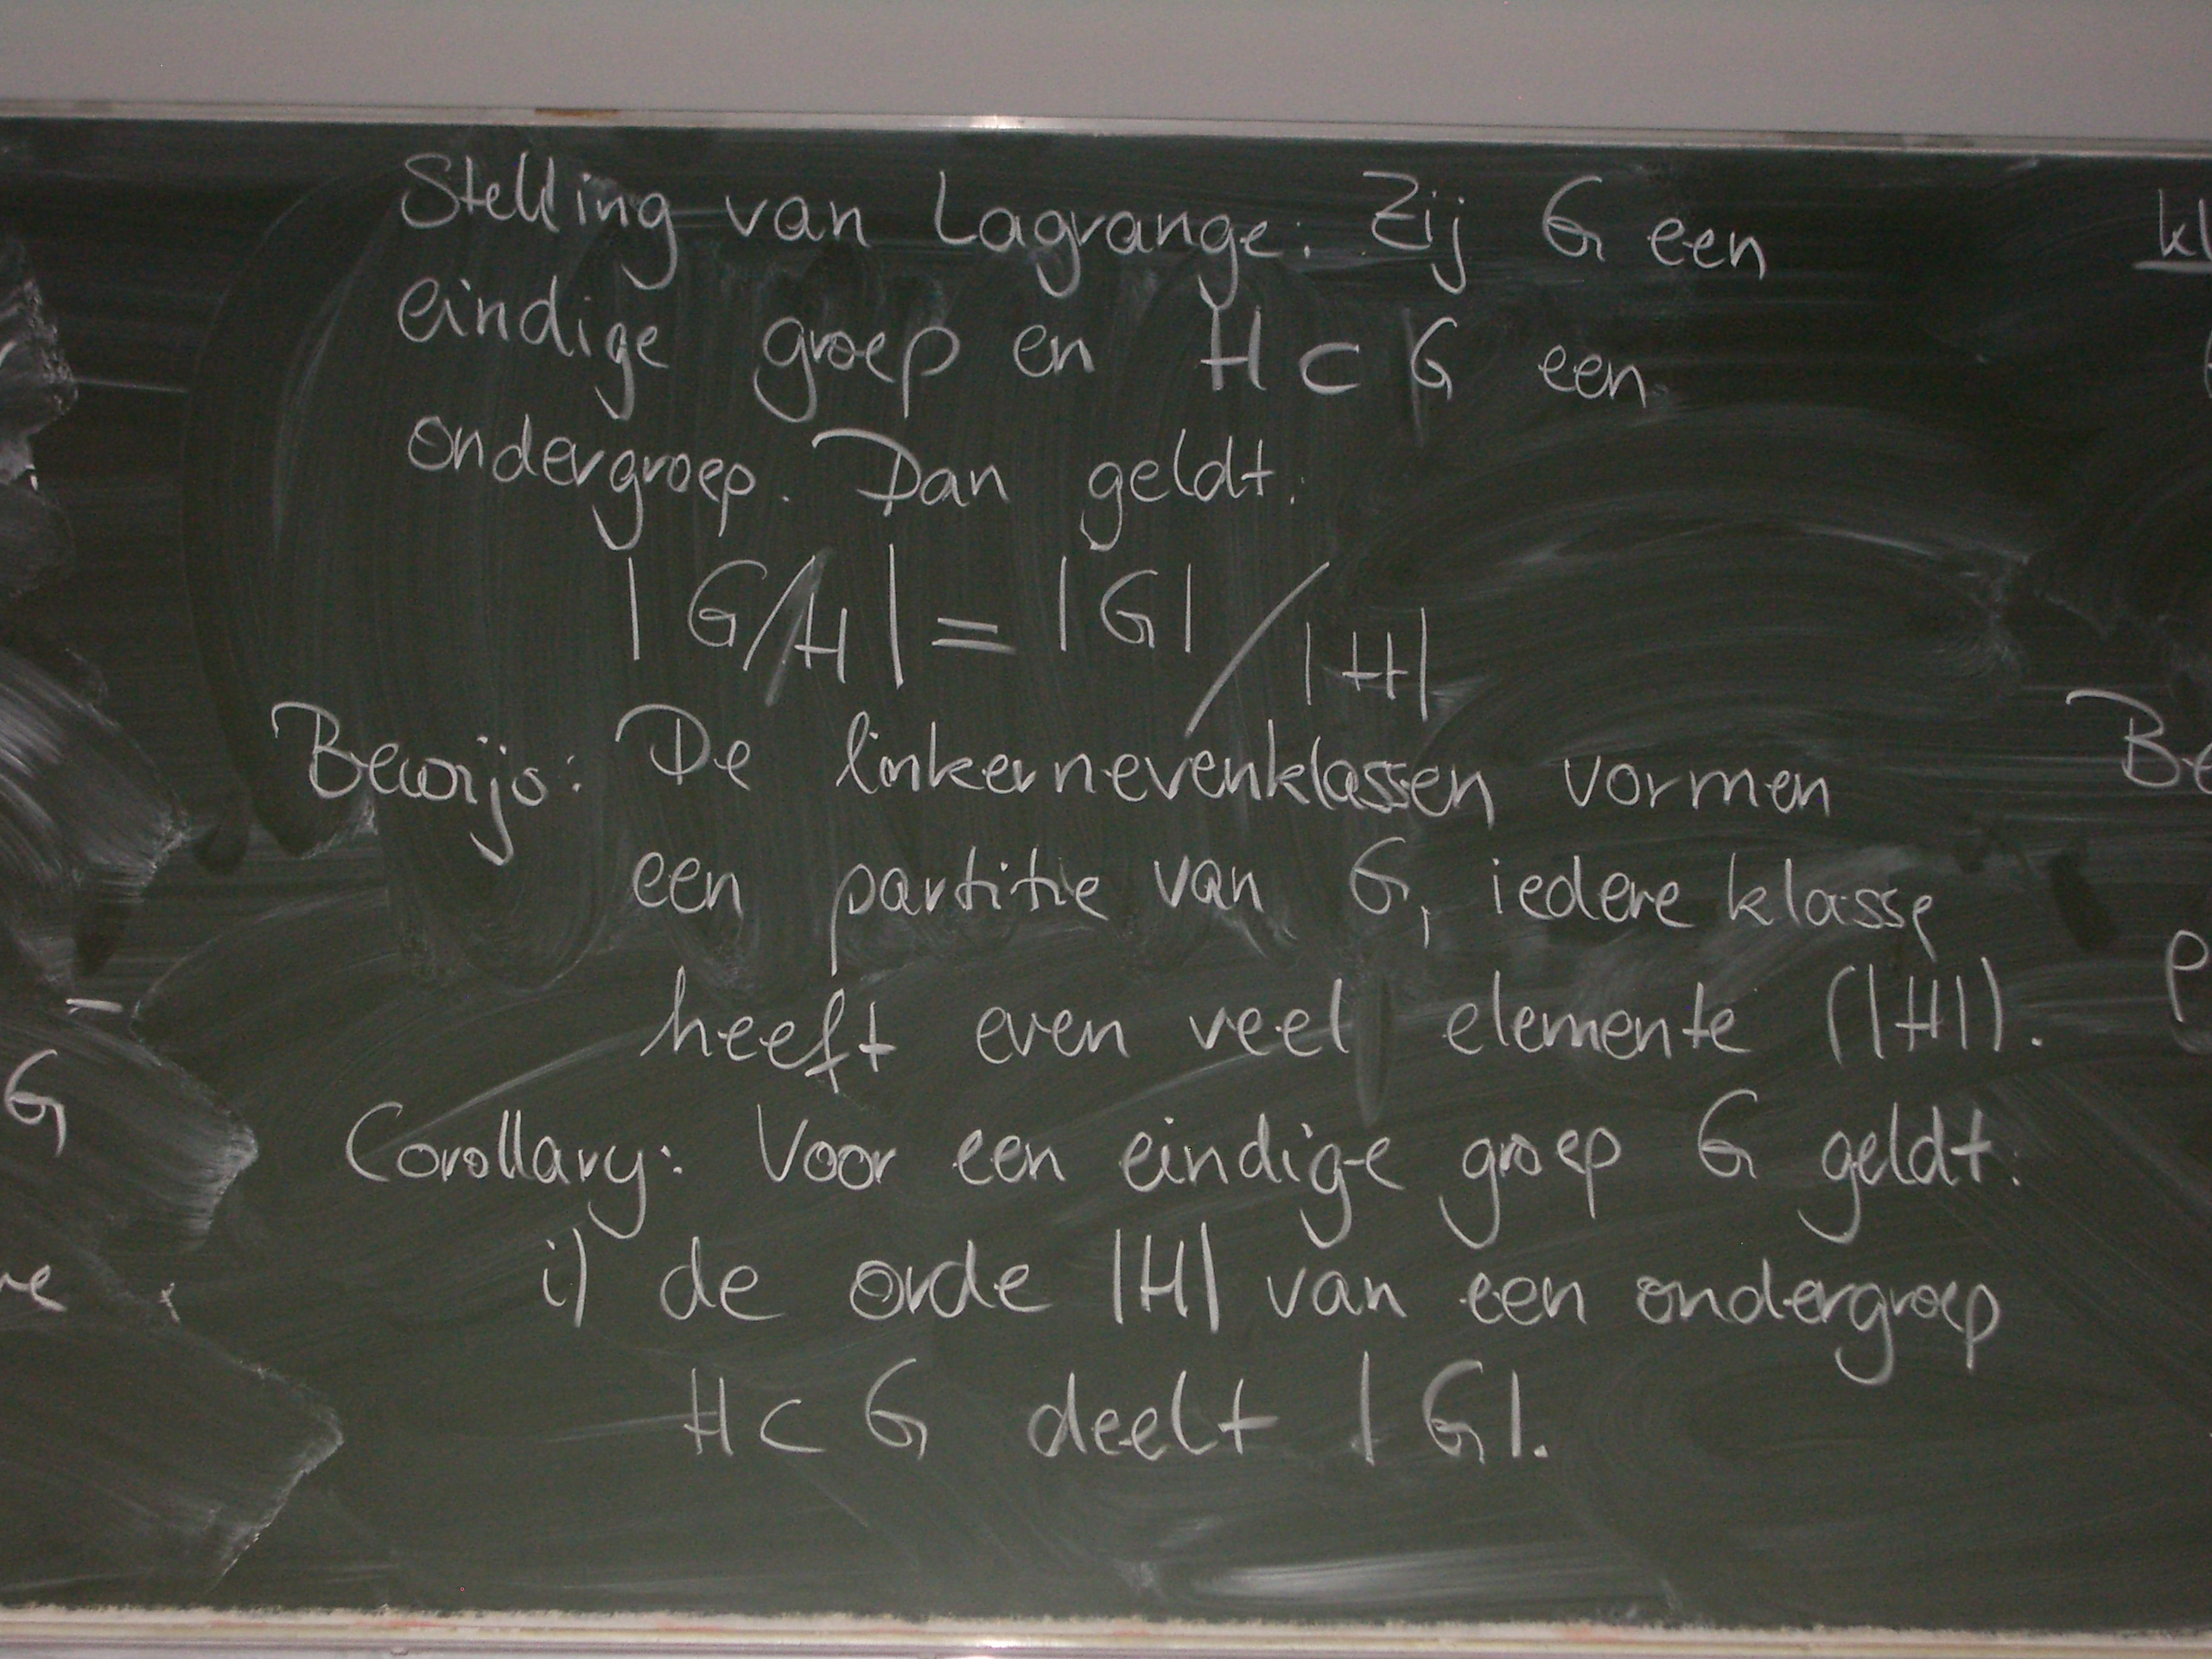 Stelling van Lagrange: Zij G een
eindige groep en H ⊂ G een
ondergroep. Dan geldt:
|G/H| = |G| / |H|
Bewijs: De linkernevenklassen vormen
een partitie van G, iedere klasse
heeft even veel elemente (|H|).
Corollary: Voor een eindige groep G geldt:
i) de orde |H| van een ondergroep
H ⊂ G deelt |G|.
G
kl
Be